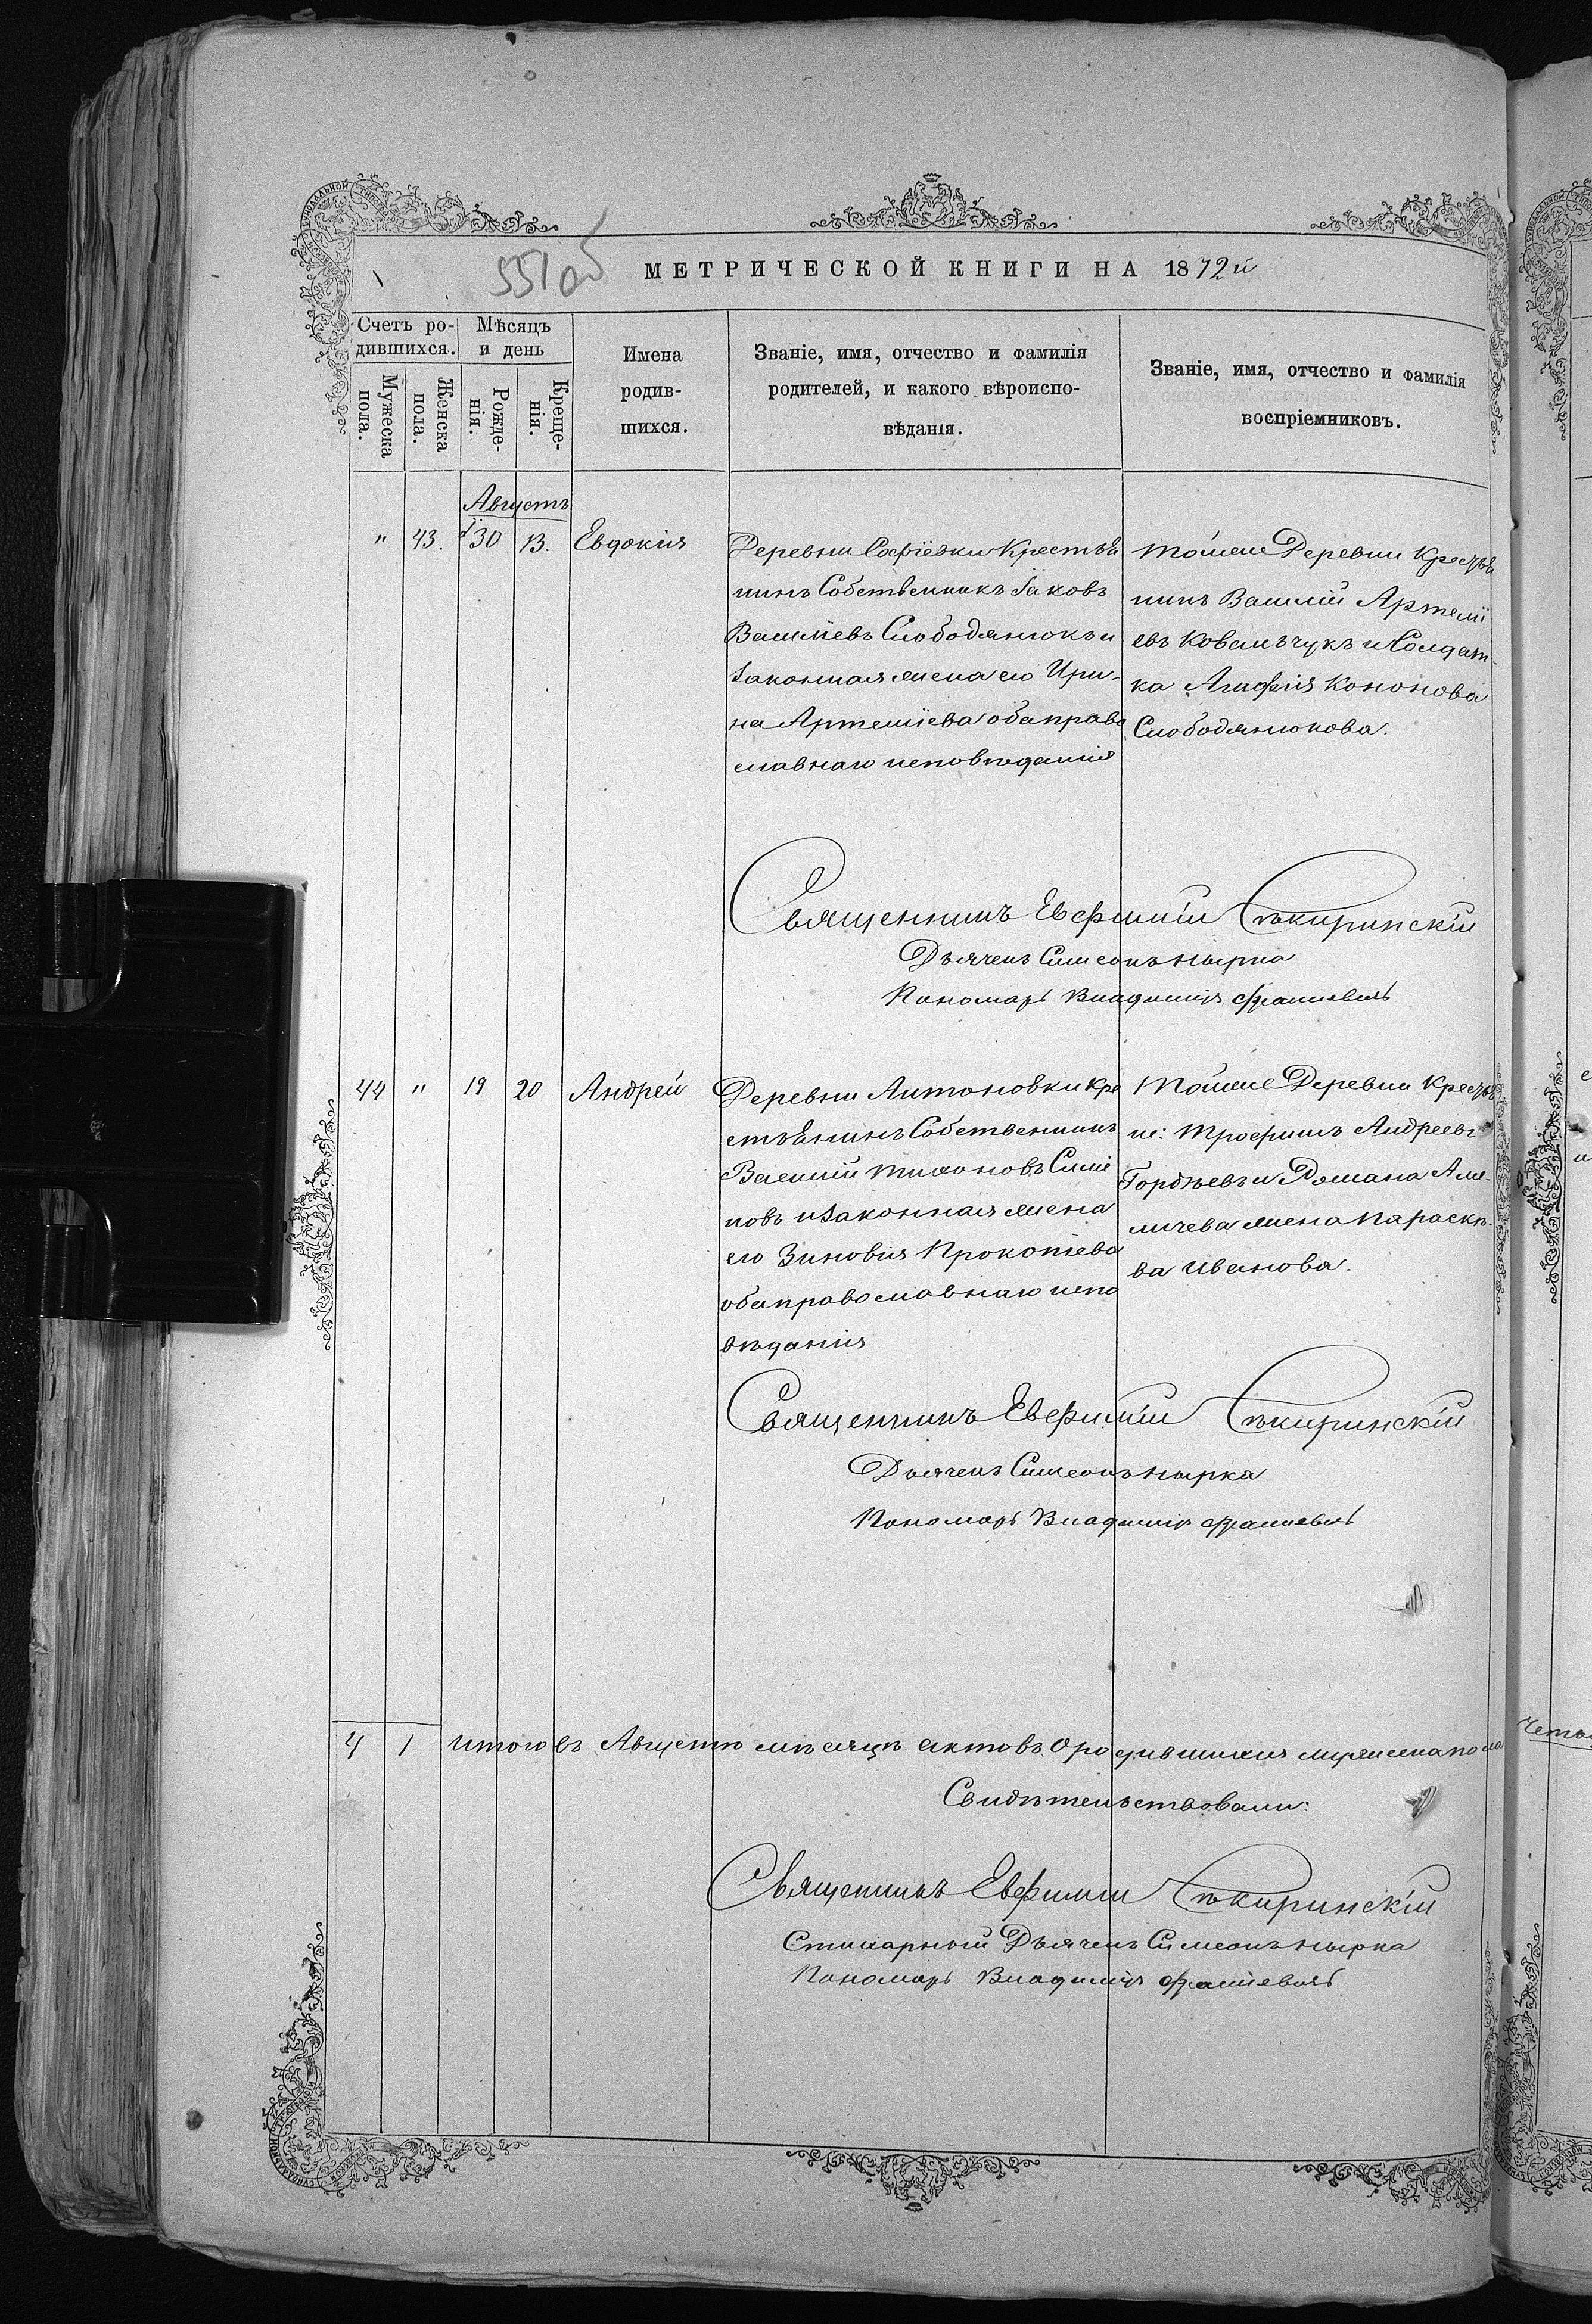 551 об
МЕТРИЧЕСКОЙ КНИГИ НА 1872й
Счетъ ро-
дившихся.
Мѣсяцъ
и день
Мужеска
пола.
Женска
пола.
Рожде-
нія.
Креще-
нія.
Имена
родив-
шихся.
Званіе, имя, отчество и фамилія
родителей, и какого вѣроиспо-
вѣданія.
Званіе, имя, отчество и фамилія
воспріемниковъ.
Августъ
" 43. 30 13. Евдокія
Деревни Софіевки Крестья
нинъ Собственникъ Іаковъ
Василіевъ Слободянюкъ и
законная жена его Ири-
на Артеміева оба право
славнаго исповѣданія
тойже Деревни Крестья
нинъ Василій Артемі
евъ Ковальчукъ и Солдат-
ка Агафія Кононова
Слободянюкова.
Священникъ Евфимій Сѣкиринскій
Дьячекъ Симеонъ Нырка
Пономарь Владиміръ
44 " 19 20 Андрей
Деревни Антоновки Кре
стьянинъ Собственникъ
Василій Тихоновъ
новъ и законная жена
его Зиновія Прокопіева
оба православнаго испо
вѣданія
Тойже Деревни Крестья
не: Трофимъ Андреевъ
Гордѣевъ и Романа Аме-
личева жена Параске-
ва Иванова.
Священникъ Евфимій Сѣкиринскій
Дьячекъ Симеонъ Нырка
Пономарь Владиміръ
4 1 Итого въ Августѣ мѣсяцѣ актовъ о родившихся мужеска пола
Свидѣтельствовали:
Священникъ Евфимій Сѣкиринскій
Стихарный Дьячекъ Симеонъ Нырка
Пономарь Владиміръ